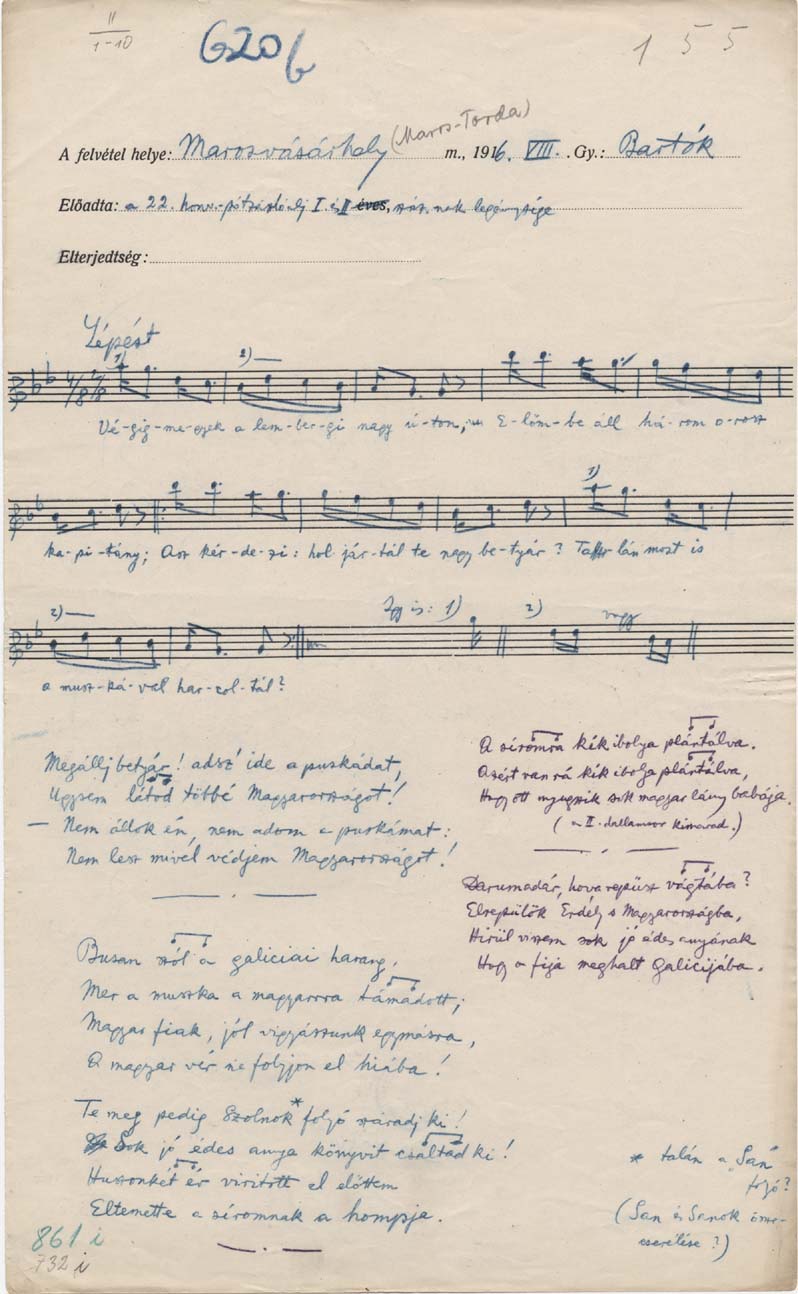 II
1-10
620 b
155
A felvétel helye: Marosvásárhely (Maros-Torda) m., 1916. VIII. Gy.: Bartók
Előadta: a 22. honv.-pótzászlóalj I és II éves, száz.nak legénysége
Elterjedtség:
Lépést
1) 2)
Vé-gig-me-gyek a lem-ber-gi nagy ú-ton, E-lőm-be áll há-rom o-rosz
1)
ka-pi-tány; Asz kér-de-zi: hol jár-tál te nagy be-tyár? Ta-lán most is
2) Így is: 1) 2) vagy
a musz-ká-val har-col-tál?
Megállj betyár! adsz' ide a puskádat,
Ugysem látod többé Magyarországot!
— Nem állok én, nem adom a puskámat:
Nem lesz mivel védjem Magyarországot!
Busan szól a galiciai harang,
Mer a muszka a magyarra támadott;
Magyar fiak, jól vigyásszunk egymásra,
A magyar vér ne folyjon el hiába!
Te meg pedig Szolnok* folyó száradj ki!
Sok jó édes anya könyvit csaltad ki!
Huszonkét ér virított el előttem
Eltemette a síromnak a hompja.
A síromra kék ibolya plántálva.
Azért van rá kék ibolya plántálva,
Hogy ott nyugszik sok magyar lány babája.
(a II. dallamsor kimarad.)
Darumadár, hova repűsz vágtába?
Elrepülök Erdély s Magyarországba,
Hirül viszem sok jó édes anyának
Hogy a fija meghalt Galicijába.
* talán a „San"
folyó?
(San és Sanok össze-
cserélése?)
861 i
732 i